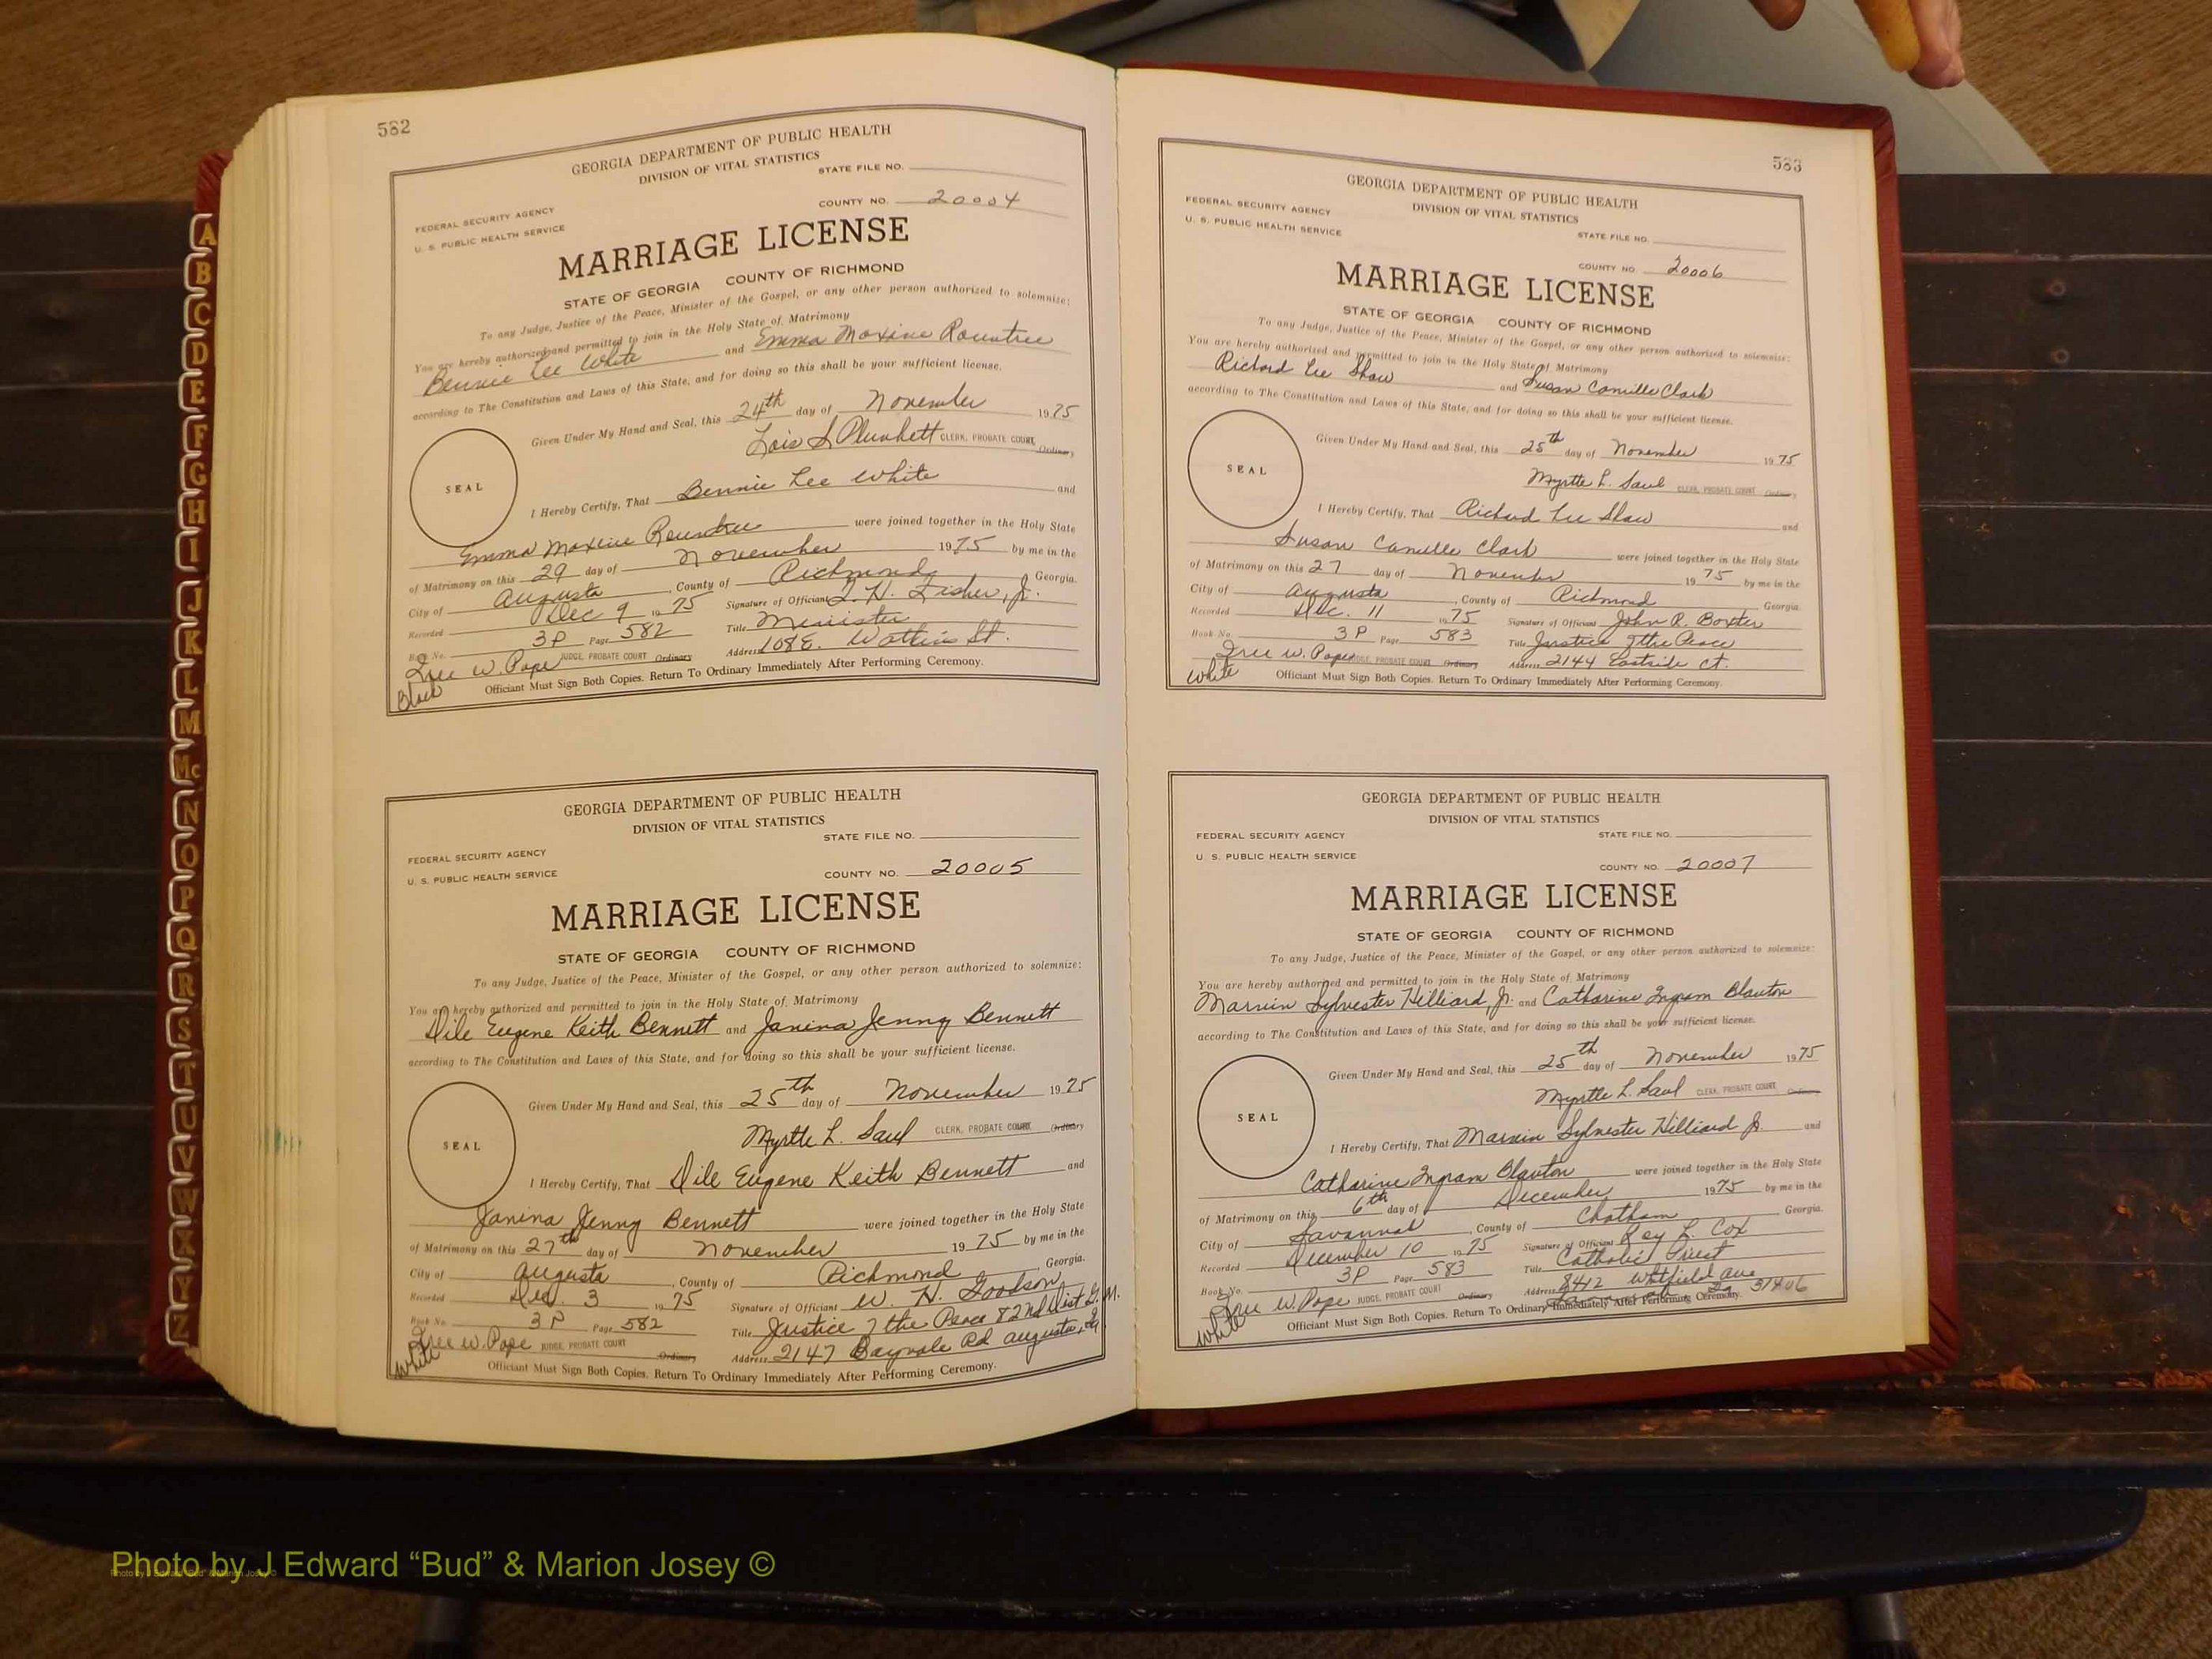 582
GEORGIA DEPARTMENT OF PUBLIC HEALTH
DIVISION OF VITAL STATISTICS
STATE FILE NO.
FEDERAL SECURITY AGENCY
COUNTY NO. 20004
U. S. PUBLIC HEALTH SERVICE
MARRIAGE LICENSE
STATE OF GEORGIA COUNTY OF RICHMOND
To any Judge, Justice of the Peace, Minister of the Gospel, or any other person authorized to solemnize:
You are hereby authorized and permitted to join in the Holy State of Matrimony
Bennie Lee White and Emma Maxine Rountree
according to The Constitution and Laws of this State, and for doing so this shall be your sufficient license.
Given Under My Hand and Seal, this 24th day of November 1975
Lois S. Plunkett CLERK, PROBATE COURT, Ordinary
SEAL
I Hereby Certify, That Bennie Lee White and
Emma Maxine Rountree were joined together in the Holy State
of Matrimony on this 29 day of November 1975 by me in the
City of Augusta, County of Richmond Georgia.
Recorded Dec 9 1975 Signature of Officiant H. Fisher, Jr.
Book No. 3P Page 582 Title Minister
W. Pope JUDGE, PROBATE COURT Ordinary Address Watkins St.
Officiant Must Sign Both Copies. Return To Ordinary Immediately After Performing Ceremony.
GEORGIA DEPARTMENT OF PUBLIC HEALTH
DIVISION OF VITAL STATISTICS
STATE FILE NO.
FEDERAL SECURITY AGENCY
COUNTY NO. 20005
U. S. PUBLIC HEALTH SERVICE
MARRIAGE LICENSE
STATE OF GEORGIA COUNTY OF RICHMOND
To any Judge, Justice of the Peace, Minister of the Gospel, or any other person authorized to solemnize:
You are hereby authorized and permitted to join in the Holy State of Matrimony
Dile Eugene Keith Bennett and Janina Jenny Bennett
according to The Constitution and Laws of this State, and for doing so this shall be your sufficient license.
Given Under My Hand and Seal, this 25th day of November 1975
Myrtle L. Saul CLERK, PROBATE COURT Ordinary
SEAL
I Hereby Certify, That Dile Eugene Keith Bennett and
Janina Jenny Bennett were joined together in the Holy State
of Matrimony on this 27th day of November 1975 by me in the
City of Augusta, County of Richmond, Georgia.
Recorded Dec. 3 1975 Signature of Officiant W. H. Goodson
Book No. 3P Page 582 Title Justice of the Peace 82nd Dist G.M.
W. Pope JUDGE, PROBATE COURT Ordinary Address 2147 Bayvale Rd Augusta, Ga
White
Officiant Must Sign Both Copies. Return To Ordinary Immediately After Performing Ceremony.
583
GEORGIA DEPARTMENT OF PUBLIC HEALTH
DIVISION OF VITAL STATISTICS
FEDERAL SECURITY AGENCY
STATE FILE NO.
U. S. PUBLIC HEALTH SERVICE
COUNTY NO. 20006
MARRIAGE LICENSE
STATE OF GEORGIA COUNTY OF RICHMOND
To any Judge, Justice of the Peace, Minister of the Gospel, or any other person authorized to solemnize:
You are hereby authorized and permitted to join in the Holy State of Matrimony
Richard Lee Shaw and Susan Camille Clark
according to The Constitution and Laws of this State, and for doing so this shall be your sufficient license.
Given Under My Hand and Seal, this 25th day of November 1975
Myrtle L. Saul CLERK, PROBATE COURT Ordinary
SEAL
I Hereby Certify, That Richard Lee Shaw and
Susan Camille Clark were joined together in the Holy State
of Matrimony on this 27 day of November 1975 by me in the
City of Augusta, County of Richmond Georgia.
Recorded Dec. 11 1975 Signature of Officiant John R. Baxter
Book No. 3P Page 583 Title Justice of the Peace
W. Pope JUDGE, PROBATE COURT Ordinary Address 2144 Eastside Ct.
White
Officiant Must Sign Both Copies. Return To Ordinary Immediately After Performing Ceremony.
GEORGIA DEPARTMENT OF PUBLIC HEALTH
DIVISION OF VITAL STATISTICS
FEDERAL SECURITY AGENCY
STATE FILE NO.
U. S. PUBLIC HEALTH SERVICE
COUNTY NO. 20007
MARRIAGE LICENSE
STATE OF GEORGIA COUNTY OF RICHMOND
To any Judge, Justice of the Peace, Minister of the Gospel, or any other person authorized to solemnize:
You are hereby authorized and permitted to join in the Holy State of Matrimony
Marvin Sylvester Hilliard, Jr. and Catharine Ingram Blanton
according to The Constitution and Laws of this State, and for doing so this shall be your sufficient license.
Given Under My Hand and Seal, this 25th day of November 1975
Myrtle L. Saul CLERK, PROBATE COURT Ordinary
SEAL
I Hereby Certify, That Marvin Sylvester Hilliard Jr. and
Catharine Ingram Blanton were joined together in the Holy State
of Matrimony on this 6th day of December 1975 by me in the
City of Savannah, County of Chatham Georgia.
Recorded December 10 1975 Signature of Officiant Ray L. Cox
Book No. 3P Page 583 Title Catholic Priest
W. Pope JUDGE, PROBATE COURT Ordinary Address 8412 Whitfield Ave
Savannah Ga 31406
White
Officiant Must Sign Both Copies. Return To Ordinary Immediately After Performing Ceremony.
A
B
C
D
E
F
G
H
I
J
K
L
M
Mc
N
O
P
Q
R
S
T
U
V
W
X
Y
Z
Photo by J Edward “Bud” & Marion Josey ©
Photo by J Edward “Bud” & Marion Josey ©